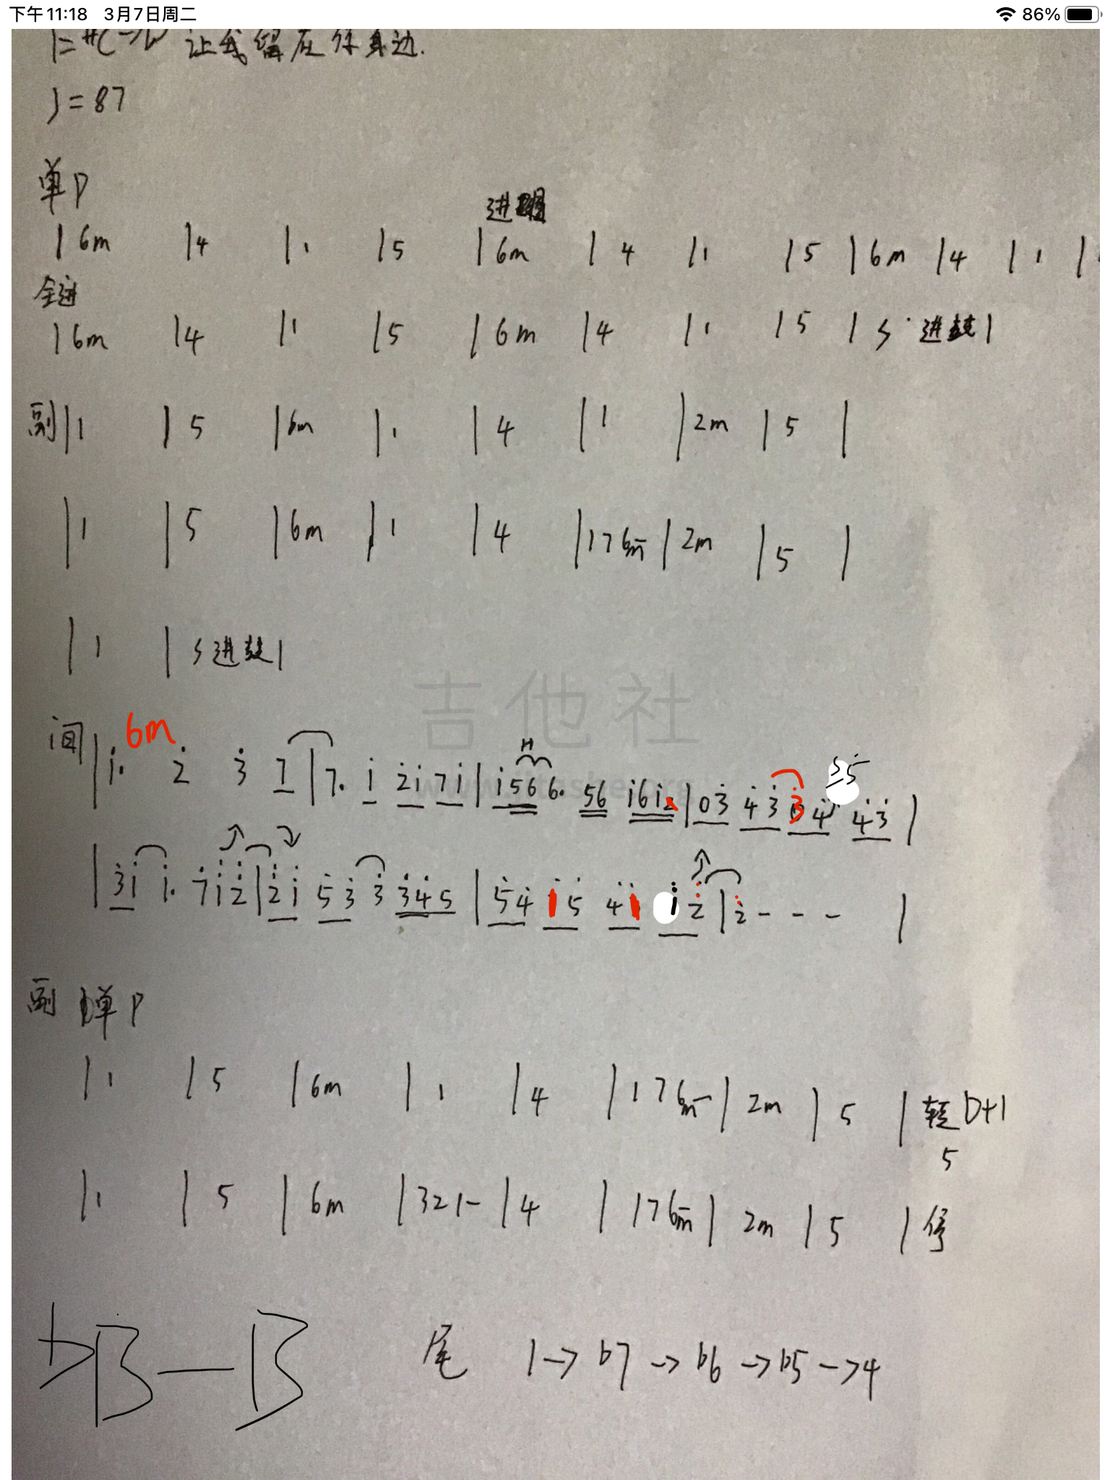 下午11:18 3月7日周二 86%
1=#C 让我留在你身边.
♩=87
单P
进
| 6m | 4 | 1 | 5 | 6m | 4 | 1 | 5 | 6m | 4 | 1 |
全进
| 6m | 4 | 1 | 5 | 6m | 4 | 1 | 5 | 5 进鼓 |
副 | 1 | 5 | 6m | 1 | 4 | 1 | 2m | 5 |
| 1 | 5 | 6m | 1 | 4 | 1 7 6m | 2m | 5 |
| 1 | 5 进鼓 |
吉他社
6m
H
间 | i. 2̇ 3̇ 7 | 7. i 2i 7i | i566. 56 i6i2 | 03̇ 4̇3̇ 3̇4̇ 4̇3̇ |
| 3̇i i. 7i2̇ | 2̇i 53 3 345 | 54 15 41 i2̇ | 2̇ - - - |
副 单P
| 1 | 5 | 6m | 1 | 4 | 1 7 6m- | 2m | 5 | 转D+1
5
| 1 | 5 | 6m | 321- | 4 | 1 7 6m | 2m | 5 | 停
bB — B
尾 1 -> b7 -> b6 -> b5 -> 4